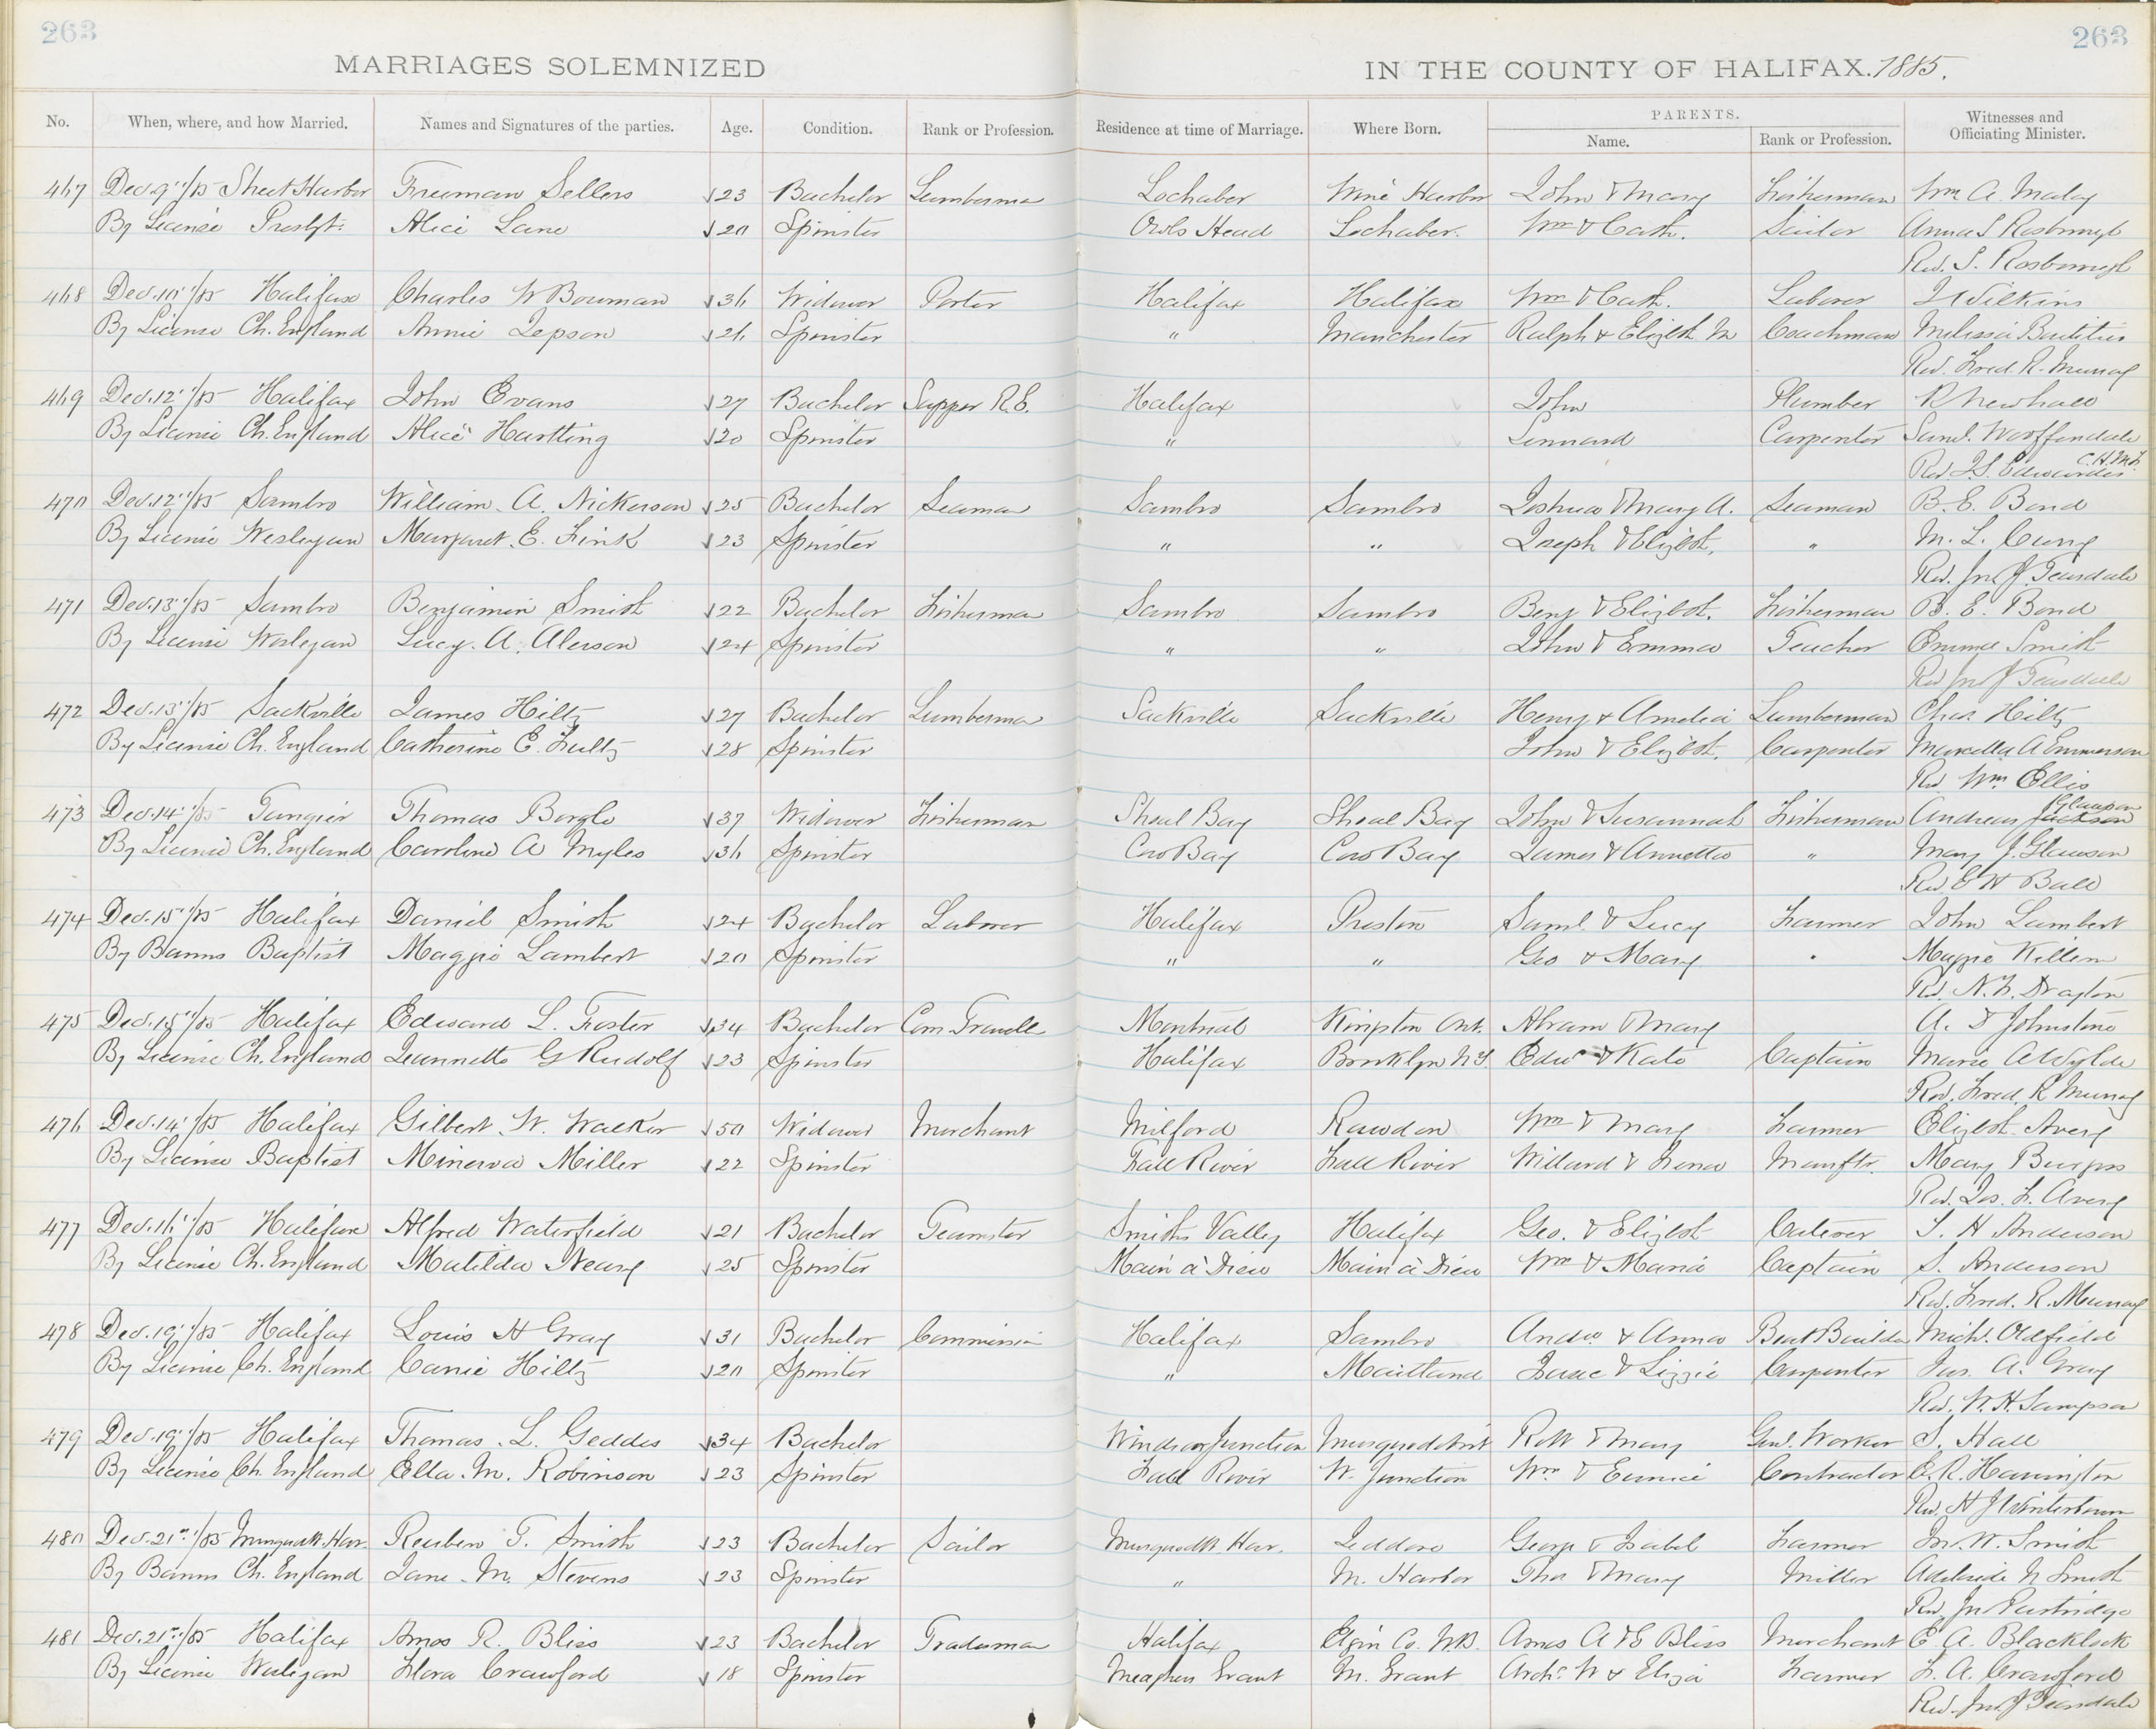 263 263
MARRIAGES SOLEMNIZED IN THE COUNTY OF HALIFAX. 1885.
No. When, where, and how Married. Names and Signatures of the parties. Age. Condition. Rank or Profession. Residence at time of Marriage. Where Born. PARENTS. Name. Rank or Profession. Witnesses and Officiating Minister.
467 Dec. 9"/85 Sheet Harbor Freeman Sellers 23 Bachelor Lumberman Lochaber Wine Harbor John & Mary Fisherman Wm A. Malay
By License Presbt. Alice Lane 20 Spinster Owls Head Lochaber. Wm & Cath. Sailor Anna S Rosborough
Rev. S. Rosborough
468 Dec. 10"/85 Halifax Charles W Bowman 36 Widower Porter Halifax Halifax Wm & Cath. Laborer Wilkins
By License Ch. England Annie Jepson 26 Spinster " Manchester Ralph & Elizbth M Coachman Melissa
Rev. Fred R. Murray
469 Dec. 12"/85 Halifax John Evans 27 Bachelor Sapper R.E. Halifax John Plumber R Newhall
By License Ch. England Alice Hartling 20 Spinster " Lennard Carpenter Saml. Wooffendale
Rev. J.S. Edwardes C.H.M.F.
470 Dec. 12"/85 Sambro William. A. Nickerson 25 Bachelor Seaman Sambro Sambro Joshua & Mary A. Seaman B. E. Bond
By License Wesleyan Margaret. E. Fink 23 Spinster " " Joseph & Elizbth. " M. L.
Rev. Jn. J. Teasdale
471 Dec. 13"/85 Sambro Benjamin Smith 22 Bachelor Fisherman Sambro Sambro Benj & Elizbth. Fisherman B. E. Bond
By License Wesleyan Lucy. A. Alerson 24 Spinster " " John & Emma Teacher Emma Smith
Rev Jn J Teasdale
472 Dec. 13"/85 Sackville James Hiltz 27 Bachelor Lumberman Sackville Sackville Henry & Amelia Lumberman Chas. Hiltz
By License Ch. England Catherine E. Fultz 28 Spinster John & Elizbth. Carpenter Marcella A Emmerson
Rev Wm. Ellis
473 Dec. 14"/85 Tangier Thomas Borgle 37 Widower Fisherman Sheal Bay Sheal Bay John & Susannah Fisherman Andrew Jackson Glawson
By License Ch. England Caroline A Myles 36 Spinster Cow Bay Cow Bay James & Annetta " Mary J. Glawson
Rev. E H Ball
474 Dec. 15"/85 Halifax Daniel Smith 24 Bachelor Laborer Halifax Preston Saml. & Lucy Farmer John Lambert
By Banns Baptist Maggie Lambert 20 Spinster " " Geo & Mary " Maggie Killem
Rev. Drayton
475 Dec. 15"/85 Halifax Edward L. Foster 34 Bachelor Com. Travell Montreal Kingston Ont. Abram & Mary A. D Johnstone
By License Ch. England Jeannette G Rudolf 23 Spinster Halifax Brooklyn N.Y. Edw & Kate Captain Marie A Wylde
Rev. Fred. R Murray
476 Dec. 14"/85 Halifax Gilbert. W. Walker 50 Widower Merchant Milford Rawdon Wm & Mary Farmer Elizbth. Avery
By License Baptist Minerva Miller 22 Spinster Fall River Fall River Willard & Lena Manftr. Mary Burgess
Rev. Jos. F. Avery
477 Dec. 16"/85 Halifax Alfred Waterfield 21 Bachelor Teamster Smiths Valley Halifax Geo. & Elizbth T. H Anderson
By License Ch. England Matilda Neary 25 Spinster Main à Dieu Main à Dieu Wm & Maria Captain S. Anderson
Rev. Fred. R. Murray
478 Dec. 19"/85 Halifax Louis H Gray 31 Bachelor Commission Halifax Sambro Andw & Anna Boat Builder Michl. Oldfield
By License Ch. England Canie Hiltz 20 Spinster " Maitland Isaac & Lizzie Carpenter Jas. A. Gray
Rev. W. H. Sampson
479 Dec. 19"/85 Halifax Thomas. L. Geddes 34 Bachelor Windsor Junction Musquodobit Robt & Mary Genl. Worker S. Hall
By License Ch. England Ella. M. Robinson 23 Spinster Fall River W. Junction Wm. & Eunice Contractor E. R. Harrington
Rev. H J Winterbourn
480 Dec. 21st/85 Musquodt. Har. Reuben T. Smith 23 Bachelor Sailor Musquodt. Har. Jeddore George & Isabel Farmer Jn. W. Smith
By Banns Ch. England Jane. M. Stevens 23 Spinster " M. Harbor Tho & Mary Miller Adelaide N Smith
Rev. Jn Partridge
481 Dec. 21st/85 Halifax Amos R. Bliss 23 Bachelor Tradesman Halifax Elgin Co. N.B. Amos A & E Bliss Merchant E. A. Blacklock
By License Wesleyan Flora Crawford 18 Spinster Meaghers Grant M. Grant Archd. W & Eliza Farmer F. A. Crawford
Rev. Jn. J Teasdale